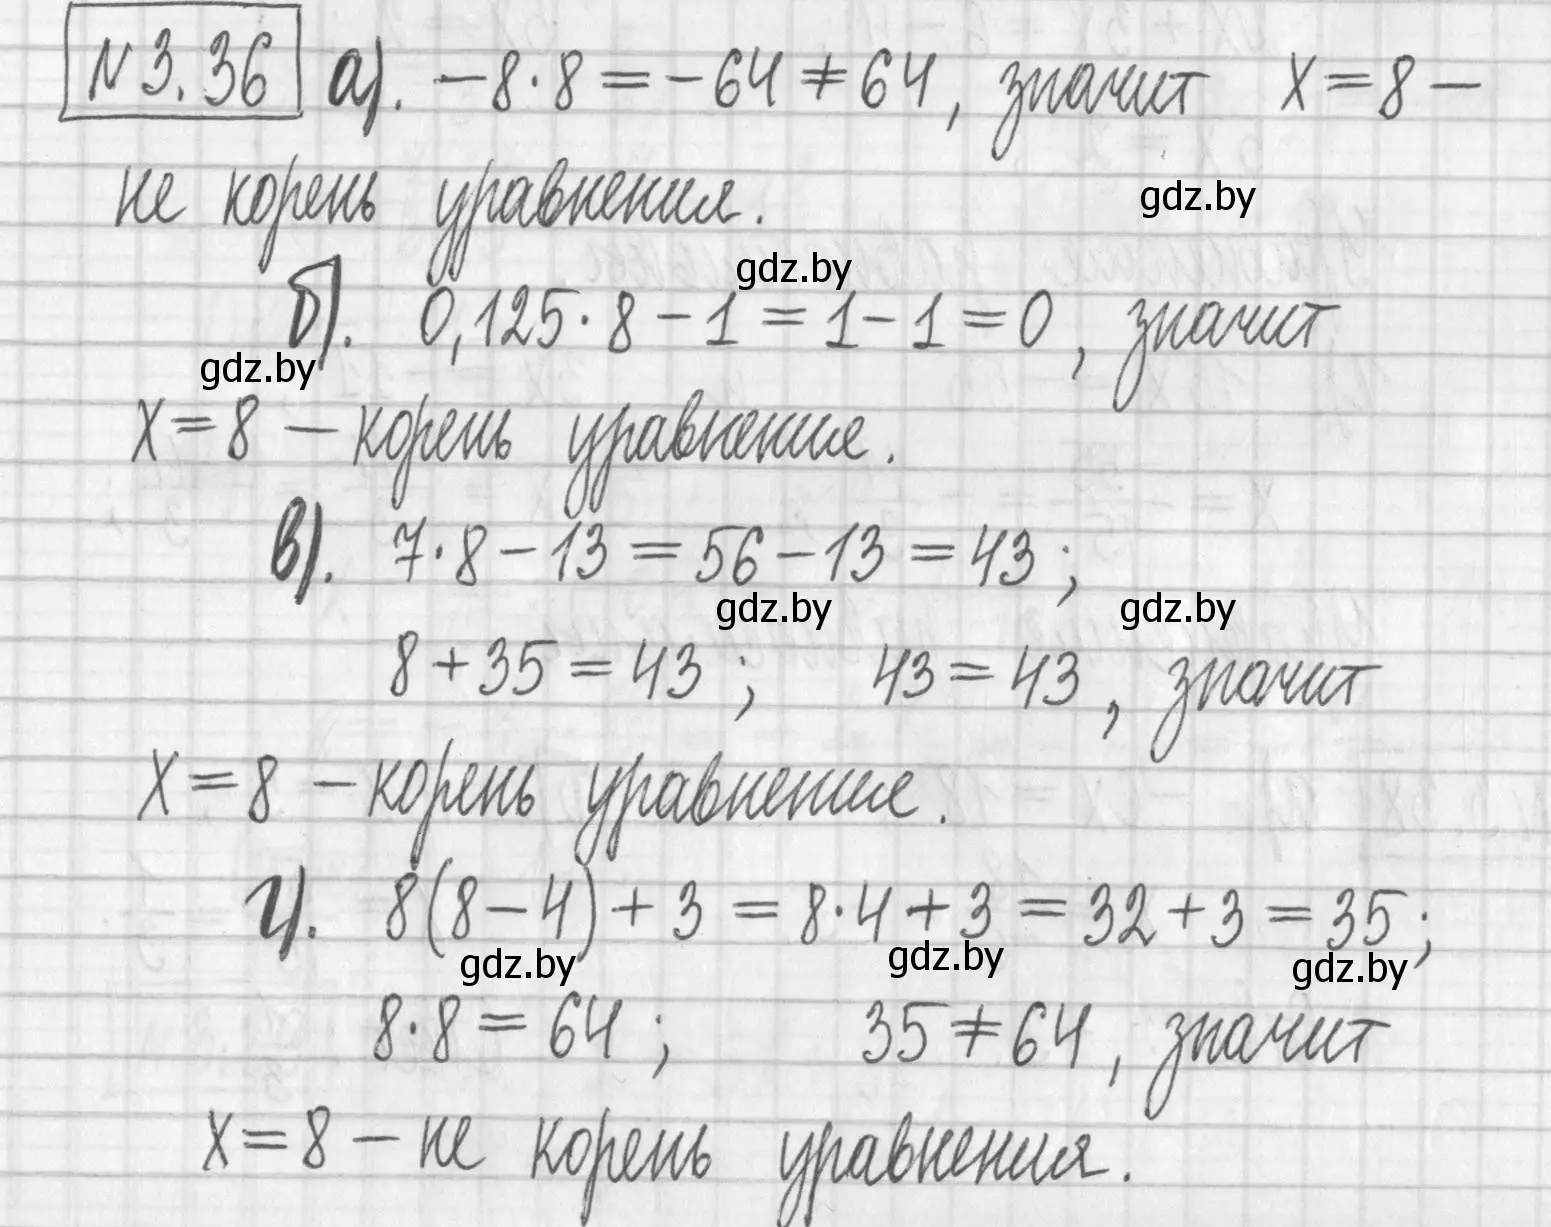 №3.36 а). -8·8=-64≠64, значит x=8-
не корень уравнения.
gdz.by
gdz.by
б). 0,125·8-1=1-1=0, значит
gdz.by
x=8 - корень уравнение.
в). 7·8-13=56-13=43;
gdz.by gdz.by
8+35=43; 43=43, значит
x=8 - корень уравнение.
г). 8(8-4)+3=8·4+3=32+3=35;
gdz.by gdz.by gdz.by
8·8=64; 35≠64, значит
x=8 - не корень уравнения.